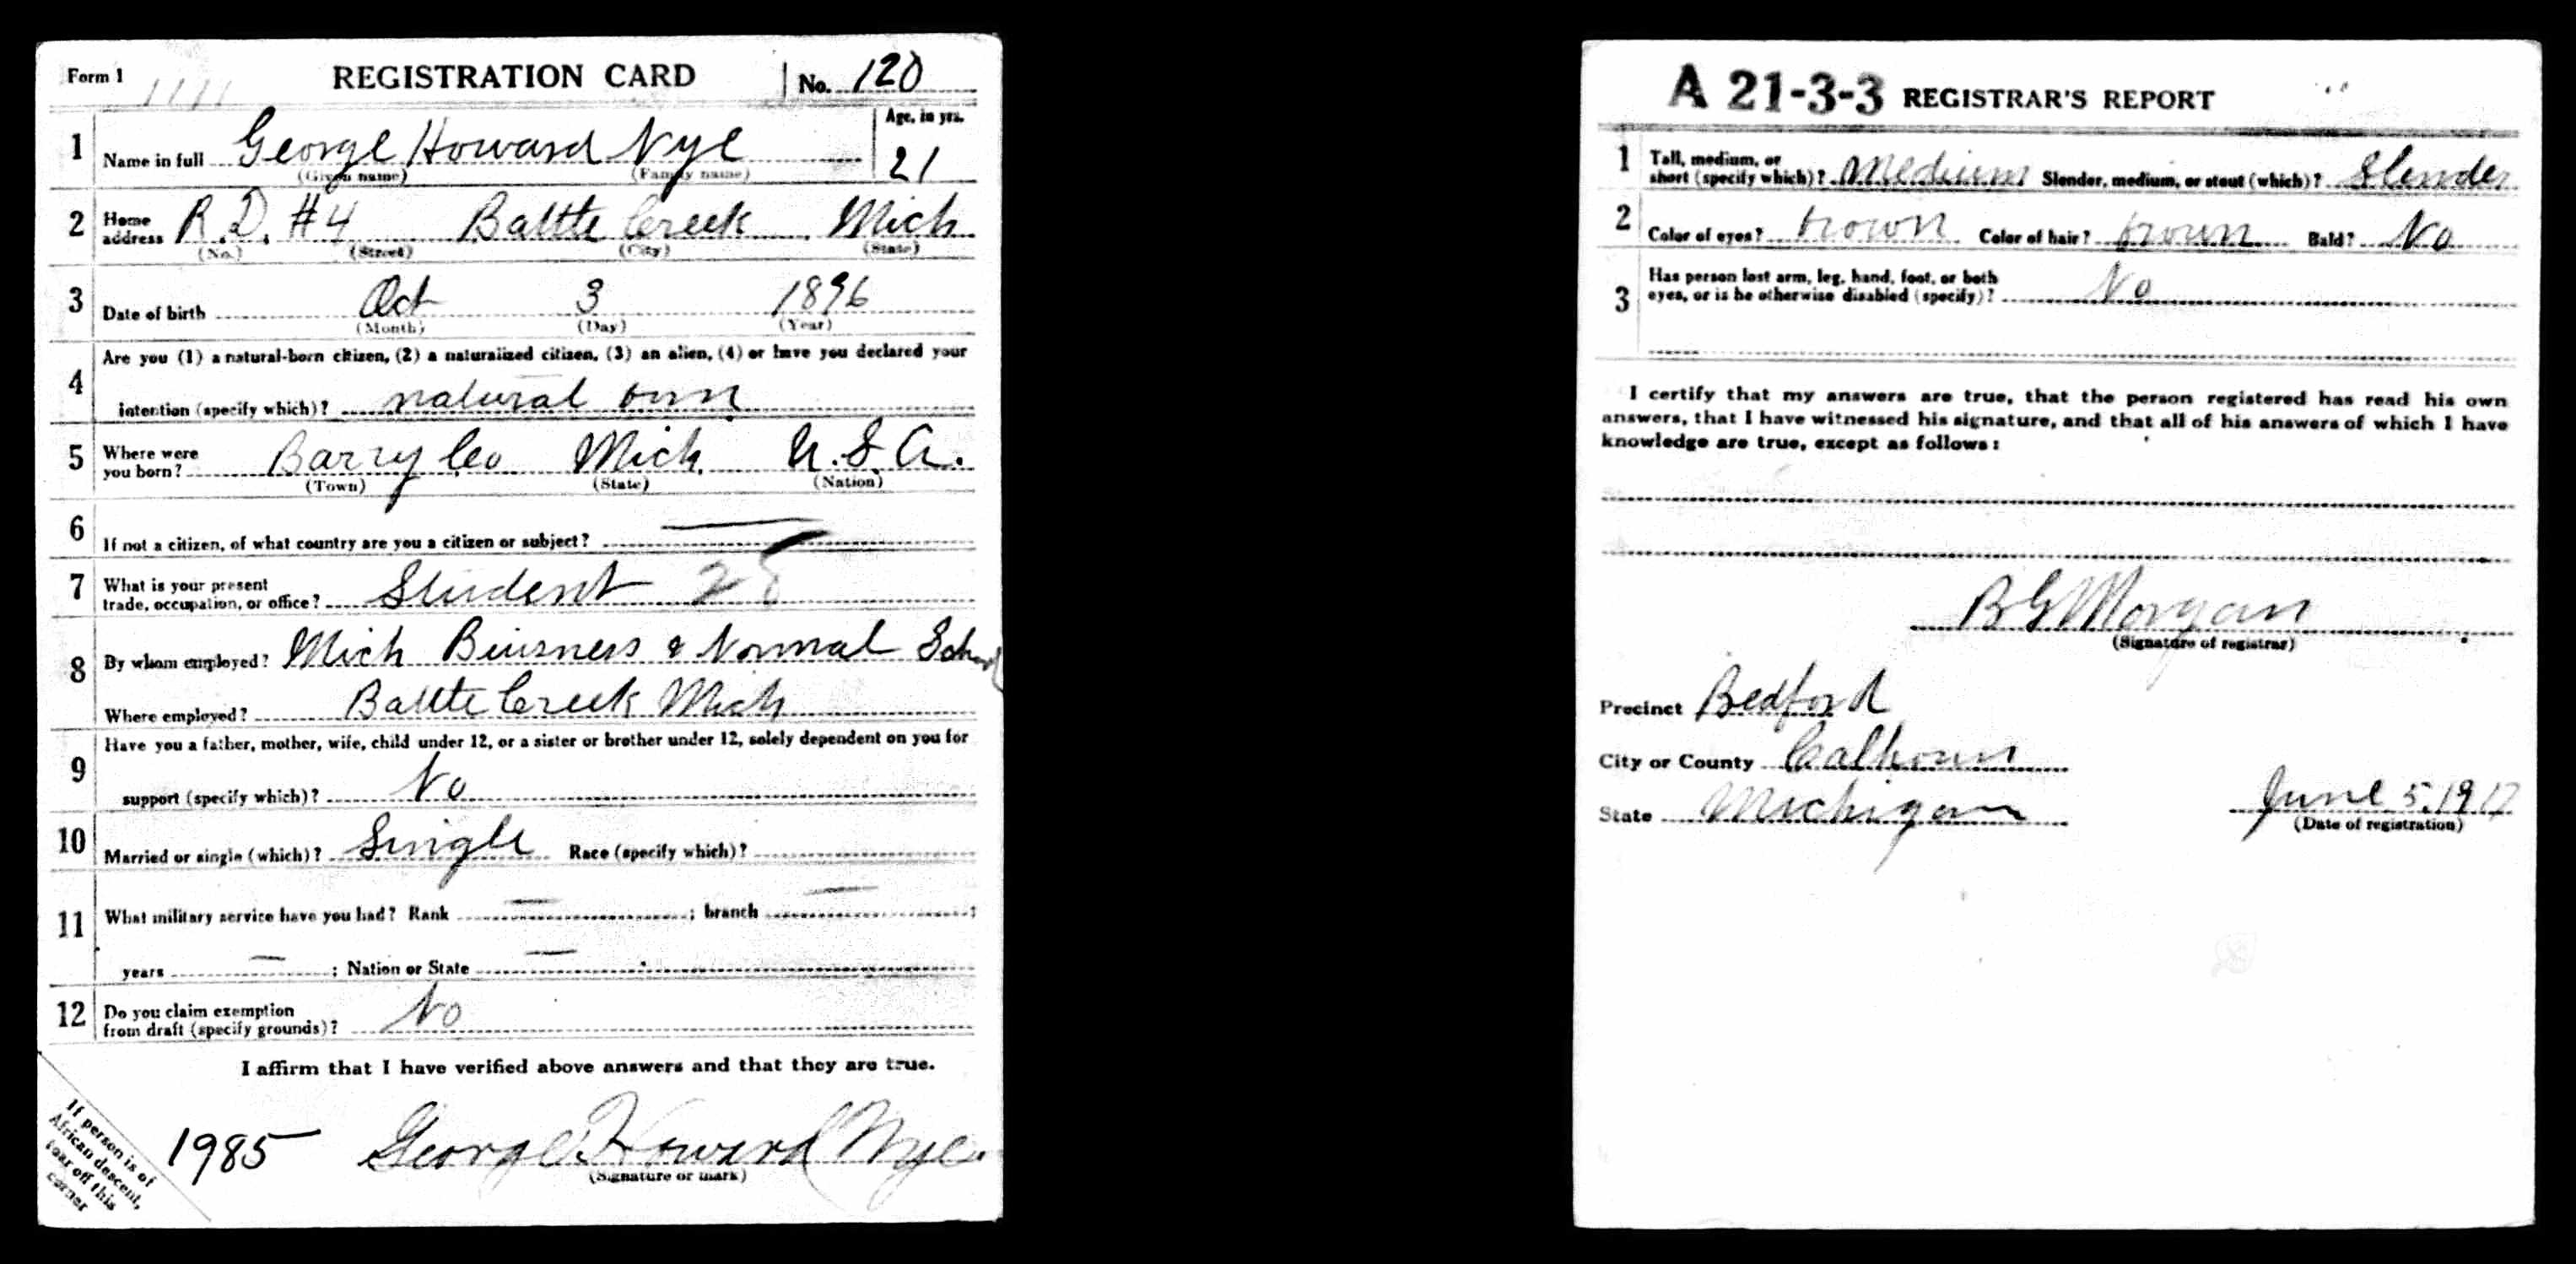 Form 1 1111 REGISTRATION CARD No. 120
1 Name in full George Howard Nye Age, in yrs. 21
(Given name) (Family name)
2 Home address R.D. #4 Battle Creek Mich
(No.) (Street) (City) (State)
3 Date of birth Oct 3 1896
(Month) (Day) (Year)
4 Are you (1) a natural-born citizen, (2) a naturalized citizen, (3) an alien, (4) or have you declared your
intention (specify which)? natural born
5 Where were you born? Barry Co Mich U.S.A.
(Town) (State) (Nation)
6 If not a citizen, of what country are you a citizen or subject? —
7 What is your present trade, occupation, or office? Student 28
8 By whom employed? Mich Buisness & Normal School
Where employed? Battle Creek Mich
9 Have you a father, mother, wife, child under 12, or a sister or brother under 12, solely dependent on you for
support (specify which)? No
10 Married or single (which)? Single Race (specify which)?
11 What military service have you had? Rank — ; branch — ;
years — ; Nation or State —
12 Do you claim exemption from draft (specify grounds)? No
I affirm that I have verified above answers and that they are true.
1985 George Howard Nye.
(Signature or mark)
If person is of
African descent,
tear off this
corner
A 21-3-3 REGISTRAR'S REPORT
1 Tall, medium, or short (specify which)? Medium Slender, medium, or stout (which)? Slender
2 Color of eyes? brown Color of hair? brown Bald? No
3 Has person lost arm, leg, hand, foot, or both
eyes, or is he otherwise disabled (specify)? No
I certify that my answers are true, that the person registered has read his own
answers, that I have witnessed his signature, and that all of his answers of which I have
knowledge are true, except as follows:
B G Morgan
(Signature of registrar)
Precinct Bedford
City or County Calhoun
State Michigan June 5, 1917
(Date of registration)